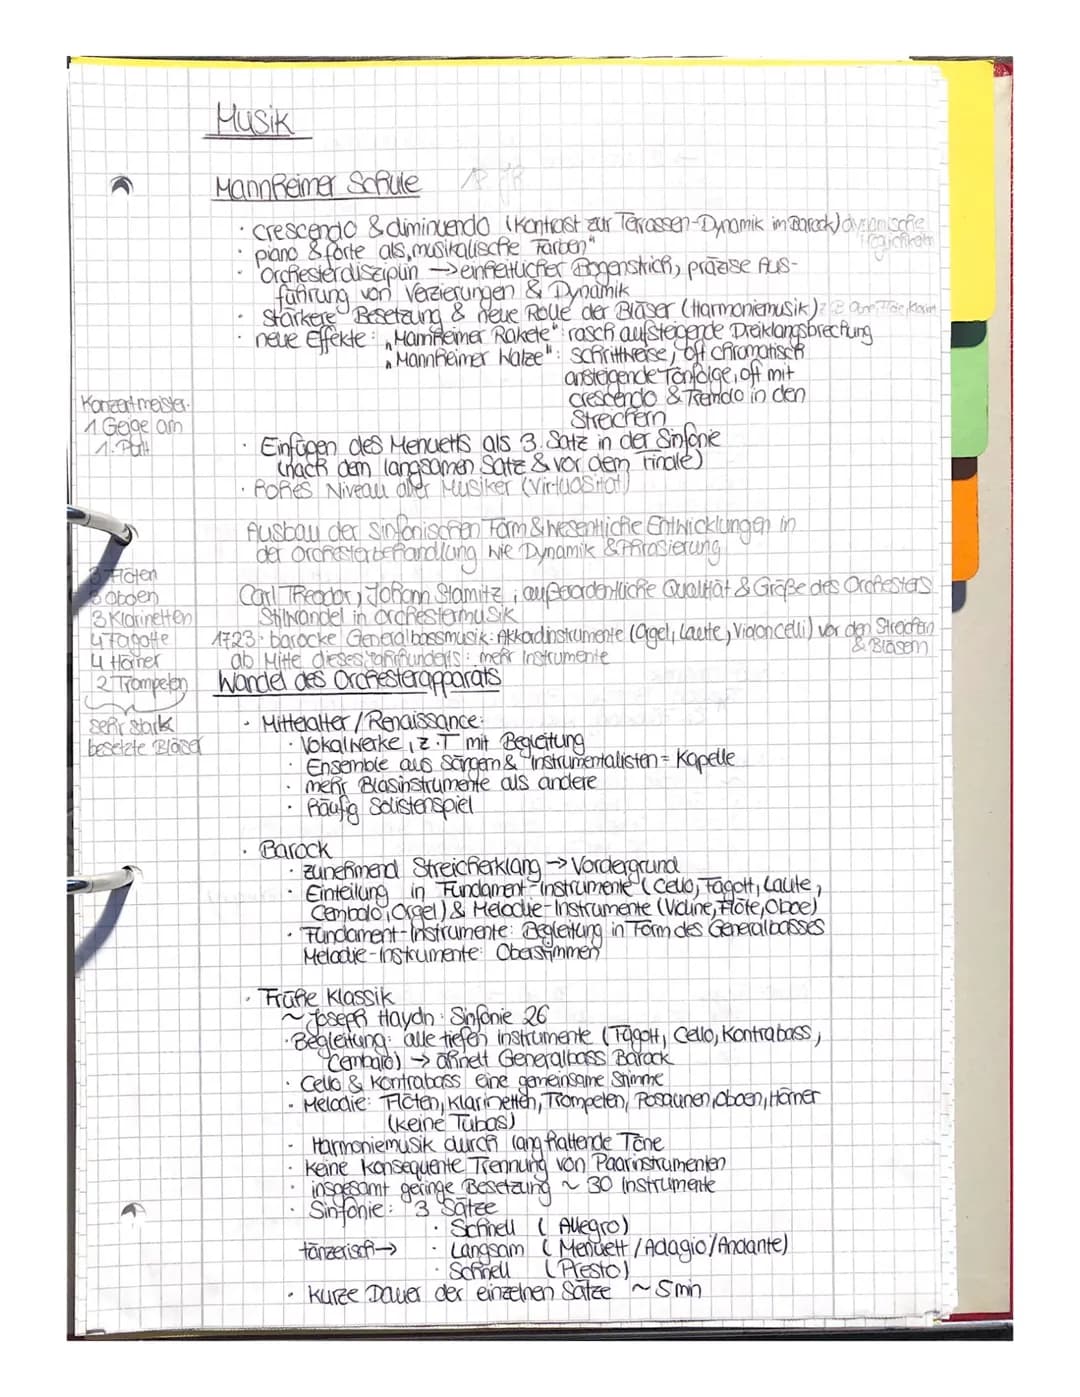 Musik
Mannheimer Schule
· crescendo & diminuendo (Kontrast zur Terassen-Dynamik im Barock) dynamische
· piano & forte als „musikalische Farben"
· Orchesterdisziplin → einheitlicher Bogenstrich, präzise Aus-
führung von Verzierungen & Dynamik
· Stärkere Besetzung & neue Rolle der Bläser (Harmoniemusik)
· neue Effekte: „Mannheimer Rakete": rasch aufsteigende Dreiklangsbrechung
„Mannheimer Walze": schrittweise, oft chromatisch
ansteigende Tonfolge, oft mit
crescendo & Tremolo in den
Streichern
Konzertmeister:
1. Geige am
1. Pult
· Einfügen des Menuetts als 3. Satz in der Sinfonie
(nach dem langsamen Satz & vor dem Finale)
· hohes Niveau aller Musiker (Virtuosität)
Ausbau der sinfonischen Form & wesentliche Entwicklungen in
der Orchesterbehandlung wie Dynamik & Phrasierung
Carl Theodor, Johann Stamitz, außerordentliche Qualität & Größe des Orchesters
Stilwandel in Orchestermusik
1723: barocke Generalbassmusik: Akkordinstrumente (Orgel, Laute, Violoncelli) vor den Streichern
& Bläsern
ab Mitte dieses Jahrhunderts: mehr Instrumente
3 Flöten
3 Oboen
3 Klarinetten
4 Fagotte
4 Hörner
2 Trompeten
sehr stark
besetzte Bläser
Wandel des Orchesterapparats
· Mittelalter / Renaissance:
· Vokalwerke, z.T mit Begleitung
· Ensemble aus Sängern & Instrumentalisten = Kapelle
· mehr Blasinstrumente als andere
· häufig Solistenspiel
· Barock
· zunehmend Streicherklang → Vordergrund
· Einteilung in Fundament-Instrumente (Cello, Fagott, Laute,
Cembalo, Orgel) & Melodie-Instrumente (Violine, Flöte, Oboe)
· Fundament-Instrumente: Begleitung in Form des Generalbasses
Melodie-Instrumente: Oberstimmen
· Frühe Klassik
~ Joseph Haydn: Sinfonie 26
· Begleitung: alle tiefen Instrumente (Fagott, Cello, Kontrabass,
Cembalo) → ähnelt Generalbass Barock
· Cello & Kontrabass eine gemeinsame Stimme
· Melodie: Flöten, Klarinetten, Trompeten, Posaunen, Oboen, Hörner
(keine Tubas)
· Harmoniemusik durch lang haltende Töne
· keine konsequente Trennung von Paarinstrumenten
· insgesamt geringe Besetzung ~ 30 Instrumente
· Sinfonie: 3 Sätze
· Schnell (Allegro)
tänzerisch → · Langsam (Menuett / Adagio / Andante)
· Schnell (Presto)
· kurze Dauer der einzelnen Sätze ~ 5 min